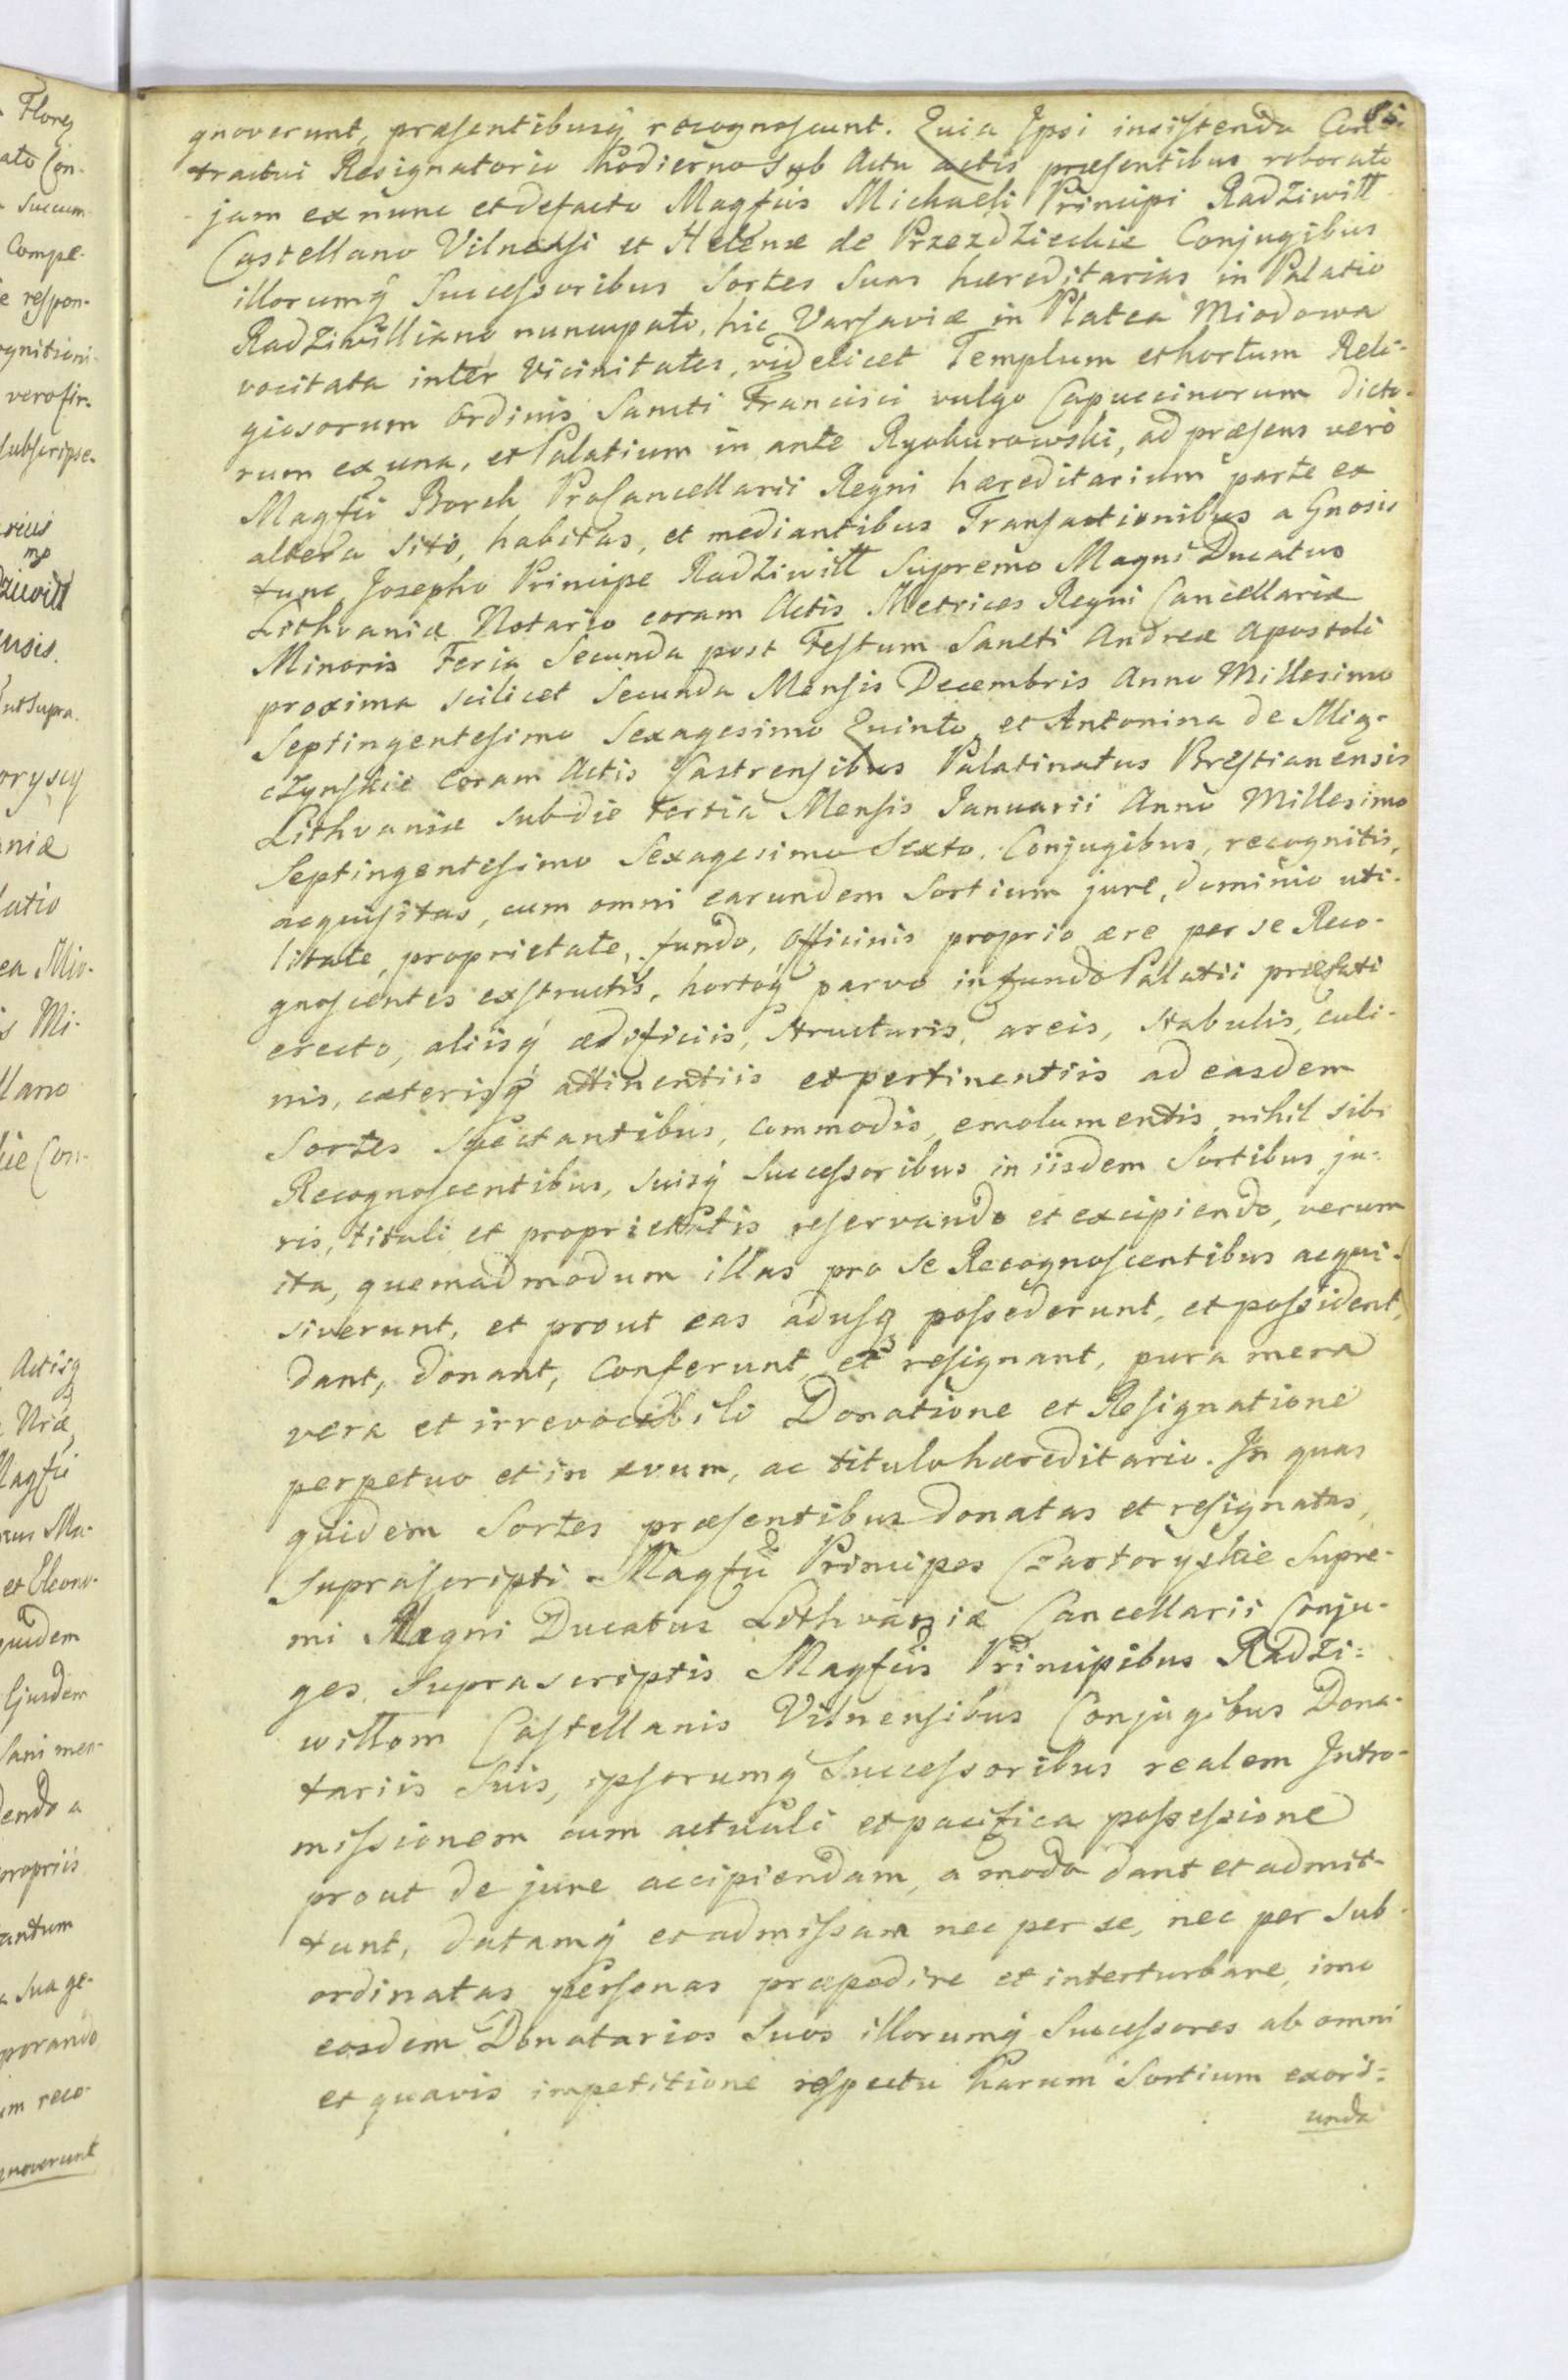 gnoverunt, præsentibusq́ recognoscunt. Quia Ipsi insistendo Con-
tractui Resignatorio hodierno sub Actu actis præsentibus roborato
jam ex nunc et de facto Magfcis Michaeli Principi Radziwiłł
Castellano Vilnensi et Helenæ de Przezdzieckie Conjugibus
illorumq́ Successoribus Sortes suas hæreditarias in Palatio
Radziwilliano nuncupato, hic Varsaviæ in Platea Miodowa
vocitata inter Vicinitates, videlicet Templum et hortum Reli-
giosorum Ordinis Sancti Francisci vulgo Capuccinorum dicto-
rum ex una, et Palatium in ante Rybkurowski, ad præsens vero
Magfci Borch Procancellarii Regni hæreditarium parte ex
altera sito, habitas, et mediantibus Transactionibus a Gnosis
tunc Josepho Principe Radziwiłł Supremo Magni Ducatus
Lithvaniæ Notario coram Actis Metrices Regni Cancellariæ
Minoris Feria Secunda post Festum Sancti Andreæ Apostoli
proxima scilicet Secunda Mensis Decembris Anno Millesimo
Septingentesimo Sexagesimo Quinto, et Antonina de Mig-
czynskie coram Actis Castrensibus Palatinatus Brestianensis
Lithvaniæ sub die tertia Mensis Januarii Anno Millesimo
Septingentesimo Sexagesimo Sexto, Conjugibus, recognitis,
acquisitas, cum omni earundem Sortium jure, dominio uti-
litate, proprietate, fundo, officinis proprio ære per se Reco-
gnoscentes exstructis, hortoq́ parvo in fundo Palatii præfati
erecto, aliisq́ ædificiis, structuris, areis, stabulis, culi-
nis, cæterisq́ attinentiis et pertinentiis ad easdem
Sortes spectantibus, commodis, emolumentis, nihil sibi
Recognoscentibus, suisq́ Successoribus in iisdem Sortibus, ju-
ris, tituli et proprietatis reservando et excipiendo, verum
ita, quemadmodum illas pro se Recognoscentibus acqui-
siverunt, et prout eas adusq possederunt, et possident,
dant, donant, conferunt, et resignant, pura mera
vera et irrevocabili Donatione et Resignatione
perpetuo et in ævum, ac titulo hæreditario. In quas
quidem Sortes præsentibus donatas et resignatas,
suprascripti Magfci Principes Czartoryskie Supre-
mi Magni Ducatus Lithvaniæ Cancellarii Conju-
ges, suprascriptis Magfcis Principibus Radzi-
wiłłom Castellanis Vilnensibus Conjugibus Dona-
tariis Suis, ipsorumq́ Successoribus realem Intro-
missionem cum actuali et pacifica possessione
prout de jure accipiendam, a modo dant et admit-
tunt, datamq́ et admissam nec per se, nec per sub-
ordinatas personas præpedire et interturbare, imo
eosdem Donatarios Suos illorumq́ Successores ab omni
et quavis impetitione respectu harum Sortium exori-
unda